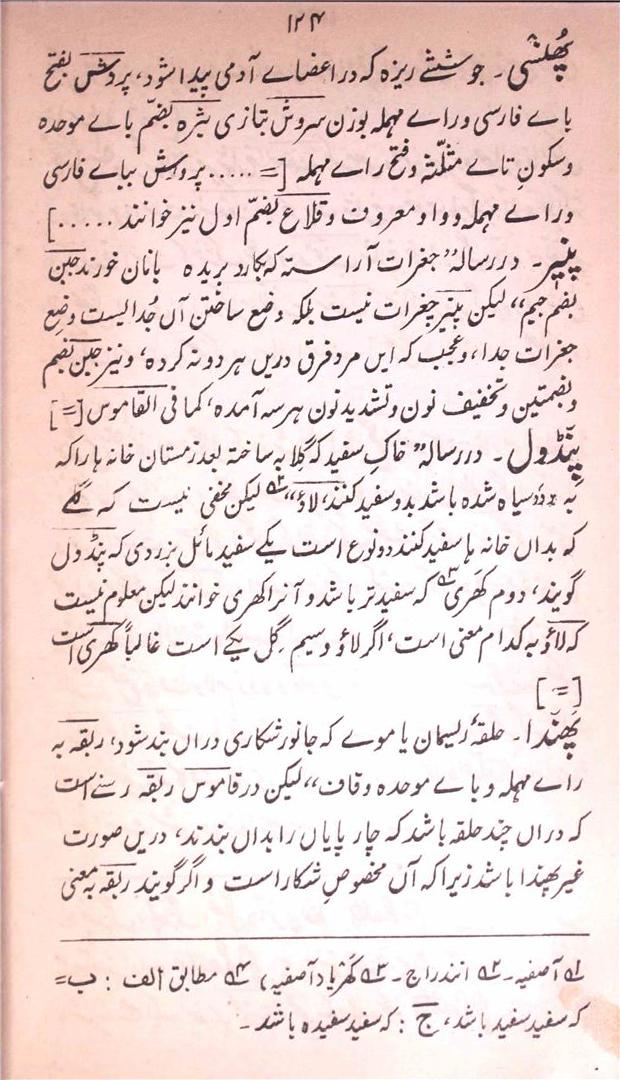 ۱۲۴
پُھنسّی ۔ جوششے ریزہ کہ در اعضاے آدمی پیدا شود، پردش بفتح
باے فارسی و راے مہملہ بوزن سروش بتازی بثرہ بضمّ باے موحدہ
و سکونِ تاے مثلّثہ و فتح راے مہملہ [= ..... پروش بباے فارسی
و راے مہملہ و واو معروف و قلاع بضمّ اول نیز خوانند .....]
پنیر ۔ در رسالہ " جغرات آراستہ کہ بکارد بریدہ بانان خورند جبن
بضم جیم" لیکن پنیر جغرات نیست بلکہ وضع ساختن آں جداایست وضع
جغرات جدا، و عجب کہ ایں مرد فرق دریں ہر دو نہ کردہ، و نیز جبن بضم
و بضمتین و تخفیف نون و تشدید نون ہر سہ آمدہ، کما فی القاموس [=]
پنڈول ۔ در رسالہ " خاکِ سفید کہ گلابہ ساختہ بعد زمستان خانہ ہا را کہ
بہ دود سیاہ شدہ باشد بدو سفید کنند، لاؤ"۲ لیکن مخفی نیست کہ گلے
کہ بداں خانہ ہا سفید کنند دو نوع است یکے سفید مائل بزردی کہ پنڈول
گویند، دوم کھری۳ کہ سفید تر باشد و آنرا کھری خوانند لیکن معلوم نیست
کہ لاؤ بہ کدام معنی است، اگر لاؤ و سیم گِل یکے است غالباً کھری است
[=]
پھندا ۔ حلقۂ ریسمان یا موے کہ جانور شکاری دراں بند شود، ربقہ بہ
راے مہملہ و باے موحدہ و قاف" لیکن در قاموس ربقہ رسنے است
کہ دراں چند حلقہ باشد کہ چار پایاں را بداں بندند، دریں صورت
غیر پھندا باشد زیرا کہ آں مخصوصِ شکار است و اگر گویند ربقہ بہ معنی
۱ آصفیہ ۔ ۲ انندراج ۔ ۳ کھریا (آصفیہ) ۴ مطابق الف : ب =
کہ سفید سفید باشد، ج : کہ سفید سفیدہ باشد ۔